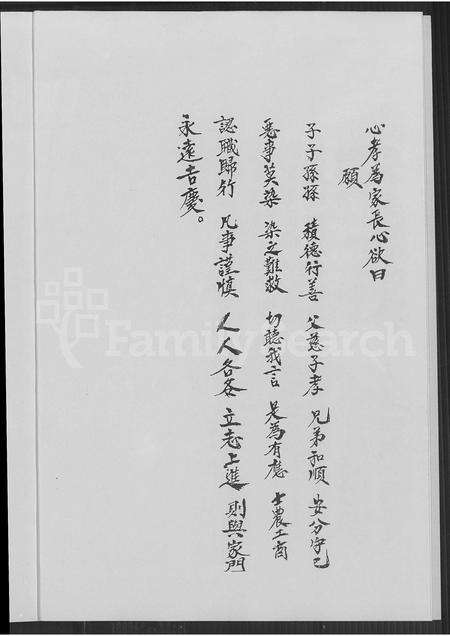 心孝為家長心欲曰
願
子子孫孫 積德行善 父慈子孝 兄弟和順 安分守己
惡事莫染 染之難救 切聽我言 是為有慮 士農工商
認職歸行 凡事謹慎 人人各各 立志上進 則與家門
永遠吉慶。
FamilySearch